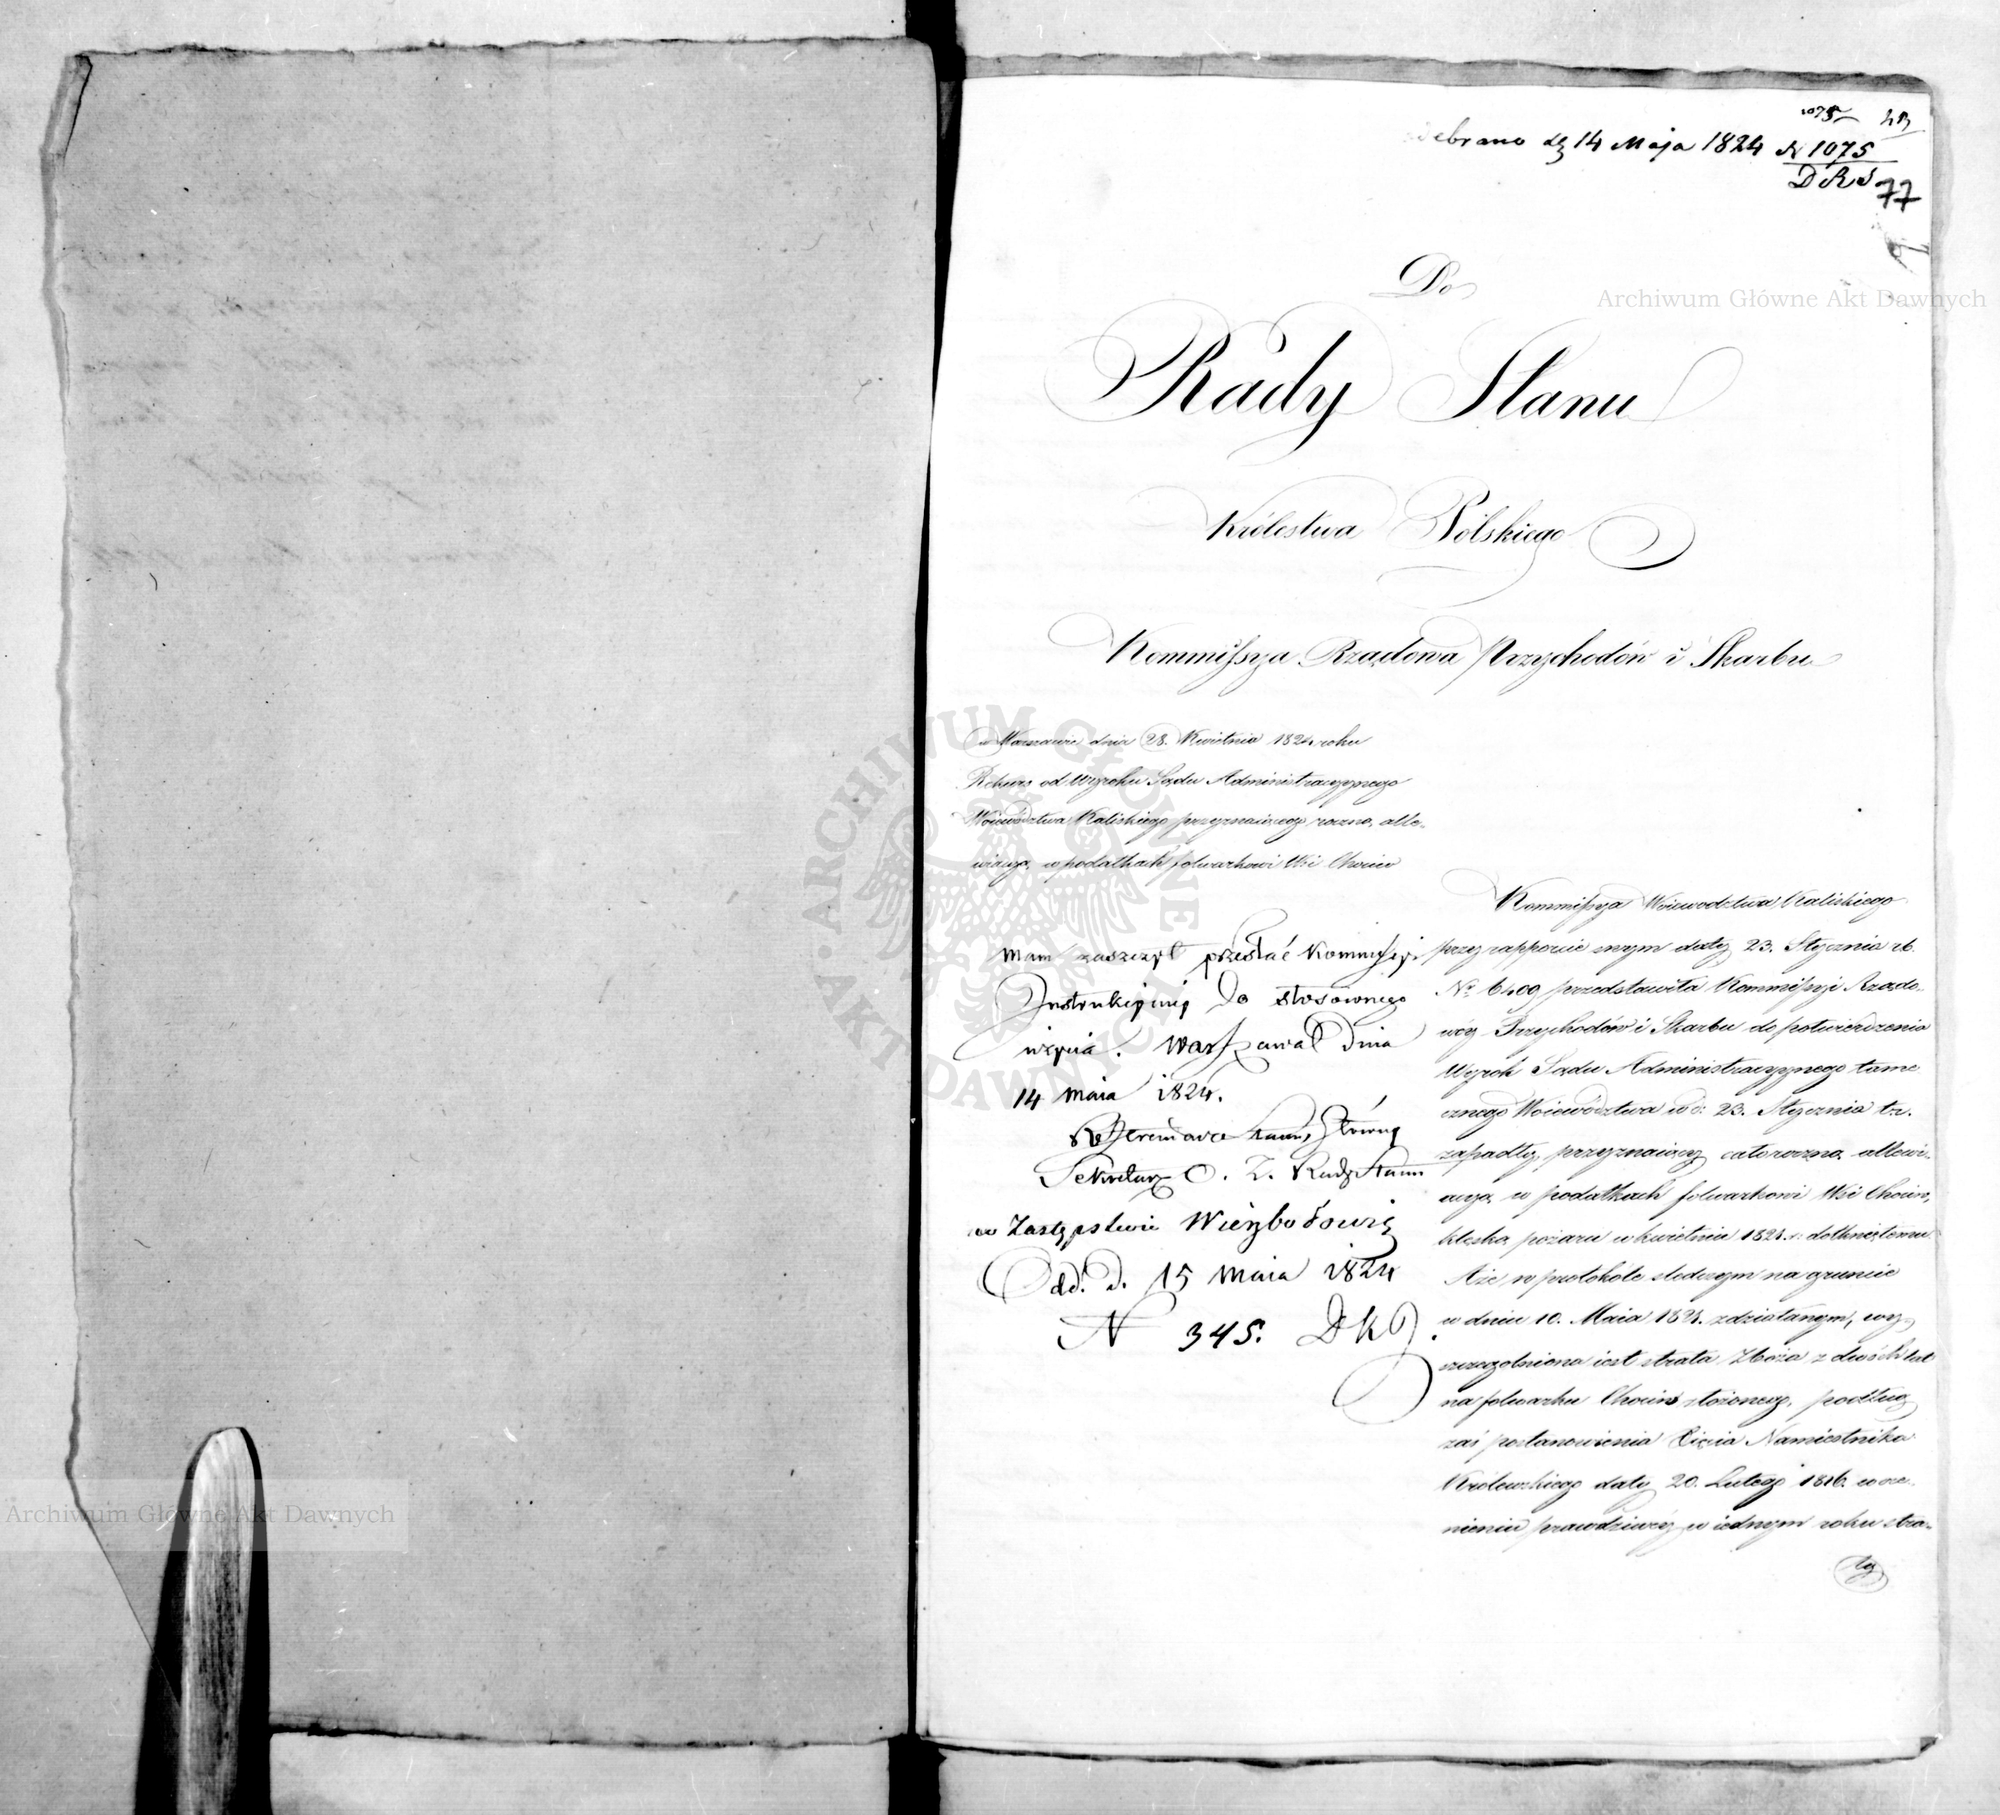 1075
Odebrano dj 14 Maja 1824 N 1075
DRS
77
Do
Rady Stanu
Królestwa Polskiego
Kommissya Rządowa Przychodów i Skarbu
w Warszawie dnia 28. Kwietnia 1824 roku
Rekurs od Wyroku Sądu Administracyynego
Woiewództwa Kaliskiego przyznaiącego roczną alle-
wiacyą w podatkach folwarkowi Wsi Chocim
Mam zaszczyt przesłać Kommissyi
Instrukcyiney do stosownego
użycia. Warszawa Dnia
14 Maia 1824.
Referendarz Stanu
Sekretarz Rady Stanu
w Zastępstwie
Odd. D. 15 Maia 1824
N 345. DKJ.
Kommissya Woiewodztwa Kaliskiego
przy rapporcie swym daty 23. Stycznia rb.
No 6409 przedstawiła Kommissyi Rządo-
wéy Przychodów i Skarbu do potwierdzenia
Wyrok Sądu Administracyynego tame-
cznego Woiewództwa w d: 23. Stycznia
zapadły, przyznaiący całoroczną allewi-
acyą w podatkach folwarkowi Wsi Chocim,
klęską pożaru w kwietniu 1821. r: dotkniętemu.
Aże w protokóle śledczym na gruncie
w dniu 10. Maia 1821. zdziałanym, wy-
szczególniona iest strata Zboża z dwóch lat
na folwarku Chocim złożonego, podług
zaś postanowienia Xięcia Namiestnika
Królewskiego daty 20. Lutego 1816. w oce-
nieniu prawdziwéy w iednym roku stra-
ty
Archiwum Główne Akt Dawnych
Archiwum Główne Akt Dawnych
ARCHIWUM GŁÓWNE AKT DAWNYCH